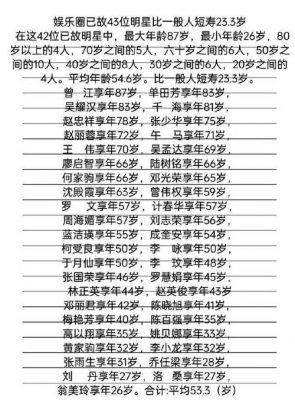 娱乐圈已故43位明星比一般人短寿23.3岁
在这42位已故明星中，最大年龄87岁，最小年龄26岁，80
岁以上的4人，70岁之间的5人，六十岁之间的6人，50岁之
间的10人，40岁之间的8人，30岁之间的6人，20岁之间的
4人。平均年龄54.6岁。比一般人短寿23.3岁。
曾 江享年87岁，单田芳享年83岁，
吴耀汉享年83岁，于 海享年81岁，
赵忠祥享年78岁，张少华享年75岁，
赵丽蓉享年72岁，午 马享年71岁，
王 伟享年70岁，吴孟达享年69岁，
廖启智享年66岁，陆树铭享年66岁，
何家驹享年66岁，邓光荣享年65岁，
沈殿霞享年63岁，曾伟权享年59岁，
罗 文享年57岁，计春华享年57岁，
周海媚享年57岁，刘志荣享年56岁，
蓝洁瑛享年55岁，成奎安享年54岁，
柯受良享年50岁，李 咏享年50岁，
于月仙享年50岁，李 玟享年48岁，
张国荣享年46岁，罗慧娟享年45岁，
林正英享年44岁，赵英俊享年43岁
邓丽君享年42岁，陈晓旭享年41岁，
梅艳芳享年40岁，陈百强享年35岁，
高以翔享年35岁，姚贝娜享年33岁，
黄家驹享年32岁，李小龙享年32岁，
张雨生享年31岁，乔任梁享年28岁，
刘 丹享年27岁，洛 桑享年27岁，
翁美玲享年26岁。合计:平均53.3（岁）